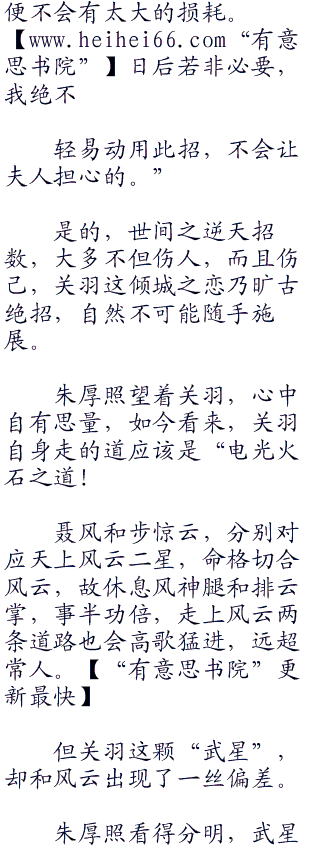 便不会有太大的损耗。
【www.heihei66.com“有意
思书院”】日后若非必要，
我绝不
轻易动用此招，不会让
夫人担心的。”
是的，世间之逆天招
数，大多不但伤人，而且伤
己，关羽这倾城之恋乃旷古
绝招，自然不可能随手施
展。
朱厚照望着关羽，心中
自有思量，如今看来，关羽
自身走的道应该是“电光火
石之道！
聂风和步惊云，分别对
应天上风云二星，命格切合
风云，故休息风神腿和排云
掌，事半功倍，走上风云两
条道路也会高歌猛进，远超
常人。【“有意思书院”更
新最快】
但关羽这颗“武星”，
却和风云出现了一丝偏差。
朱厚照看得分明，武星